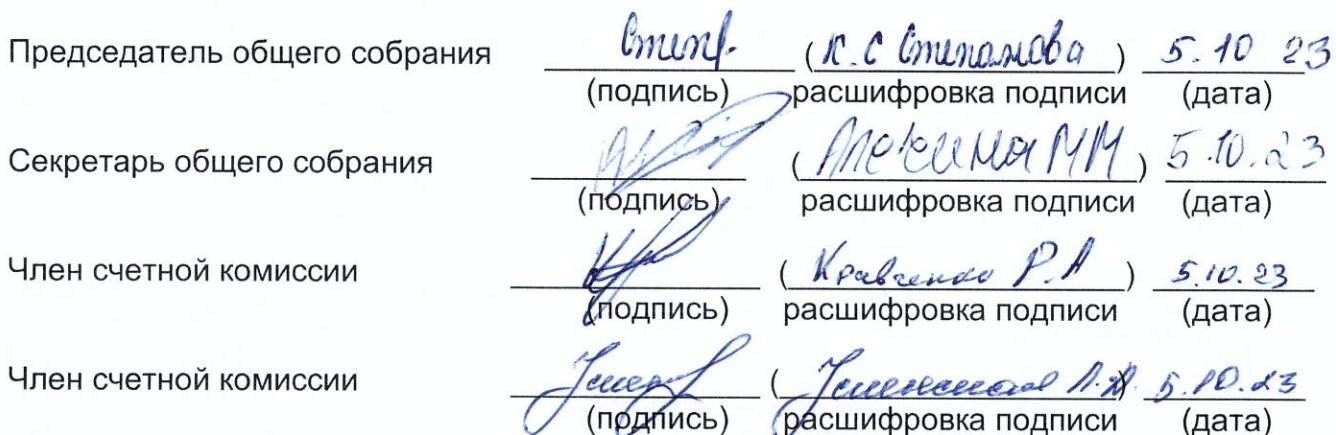 Председатель общего собрания (К.С Степанова) 5.10 23
(подпись) расшифровка подписи (дата)
Секретарь общего собрания (Алекина ММ) 5.10.23
(подпись) расшифровка подписи (дата)
Член счетной комиссии (Кравченко Р.А) 5.10.23
(подпись) расшифровка подписи (дата)
Член счетной комиссии ( ) 5.10.23
(подпись) расшифровка подписи (дата)